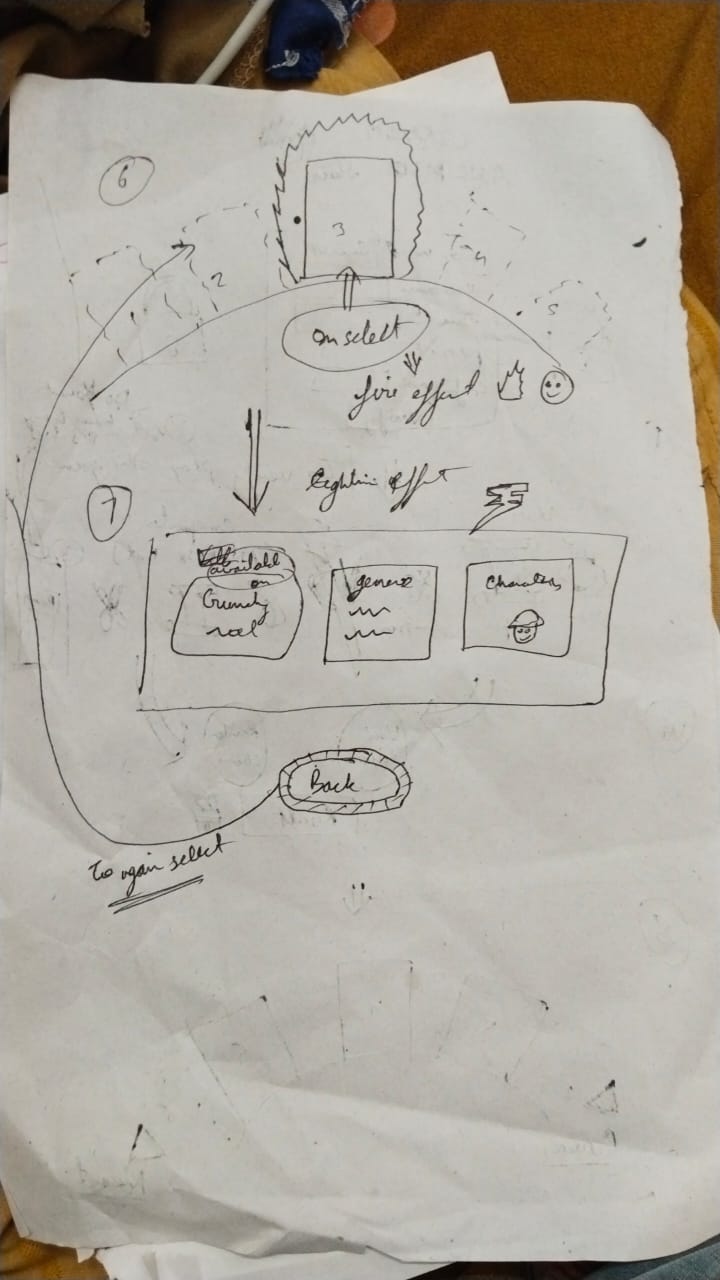 6
3
2
4
5
On select
fire effect
Lightin effect
7
available
on
Crunchy
roll
genere
Characters
Back
To again select